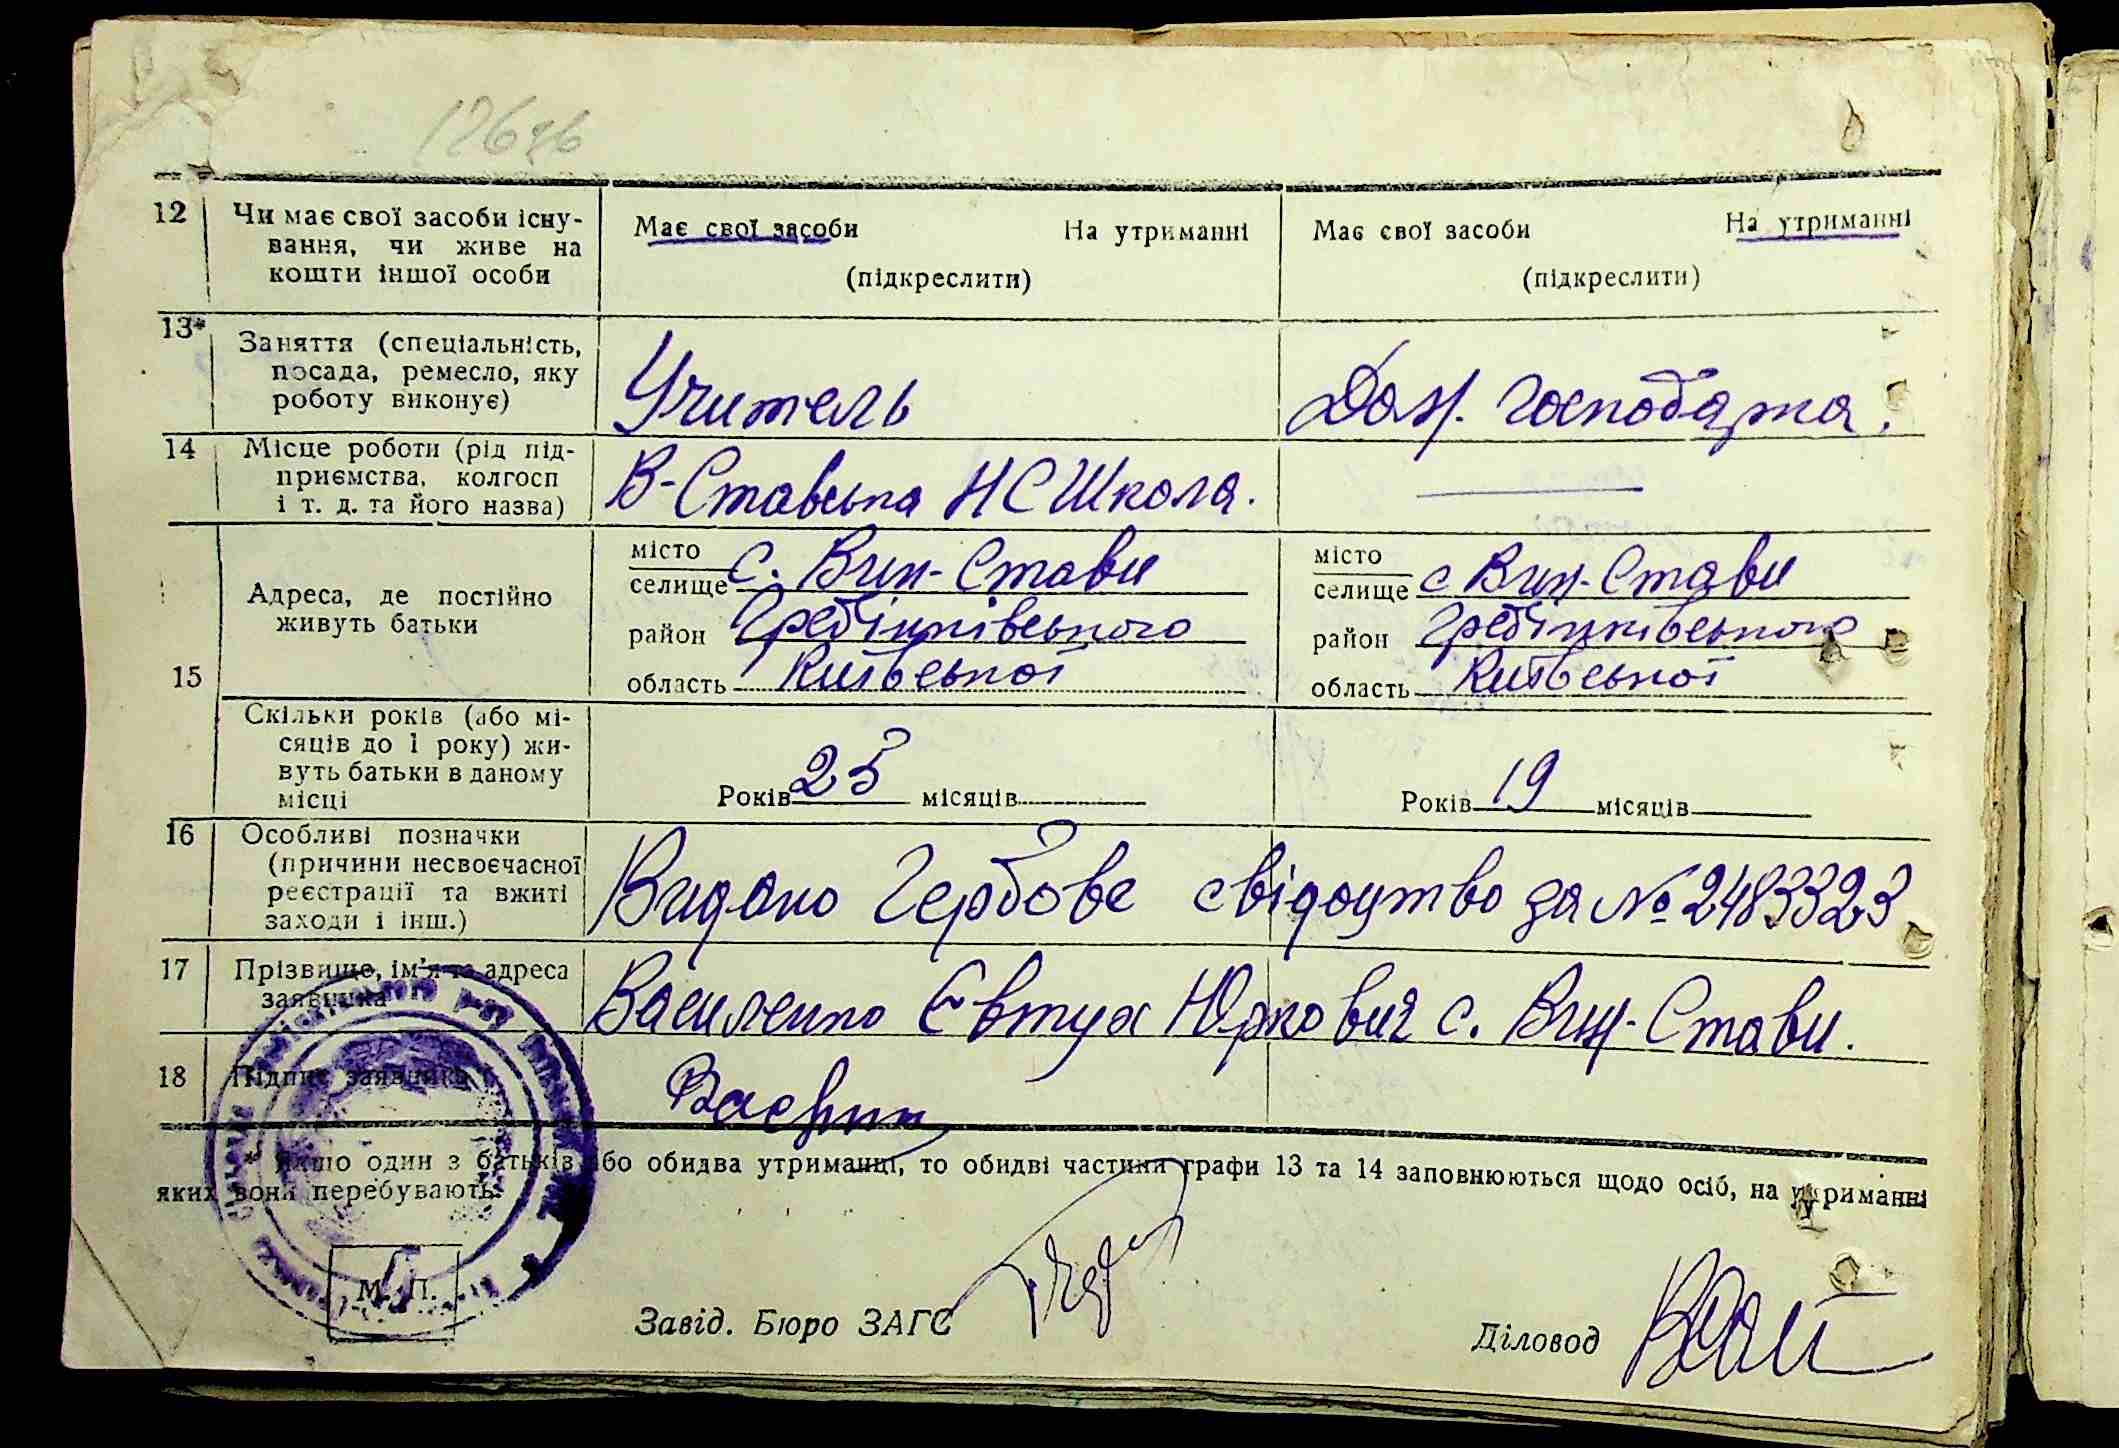 126 зв
12 Чи має свої засоби існу-
вання, чи живе на
кошти іншої особи
Має свої засоби На утриманні
(підкреслити)
Має свої засоби На утриманні
(підкреслити)
13* Заняття (спеціальність,
посада, ремесло, яку
роботу виконує)
Учитель
Дом. господарка.
14 Місце роботи (рід під-
приємства, колгосп
і т. д. та його назва)
В-Ставська НСШкола.
15
Адреса, де постійно
живуть батьки
місто
селище с. Вин-Стави
район Гребінківського
область Київської
місто
селище с Вин-Стави
район Гребінківського
область Київської
Скільки років (або мі-
сяців до 1 року) жи-
вуть батьки в даному
місці
Років 25 місяців
Років 19 місяців
16 Особливі позначки
(причини несвоєчасної
реєстрації та вжиті
заходи і інш.)
Видано Гербове свідоцтво за № 2483323
17 Прізвище, ім'я та адреса
заявника
Василенко Євтух Юркович с. Вин-Стави.
18 Підпис заявника
* Якщо один з батьків або обидва утриманці, то обидві частини графи 13 та 14 заповнюються щодо осіб, на утриманні
яких вони перебувають.
М. П.
Завід. Бюро ЗАГС
Діловод